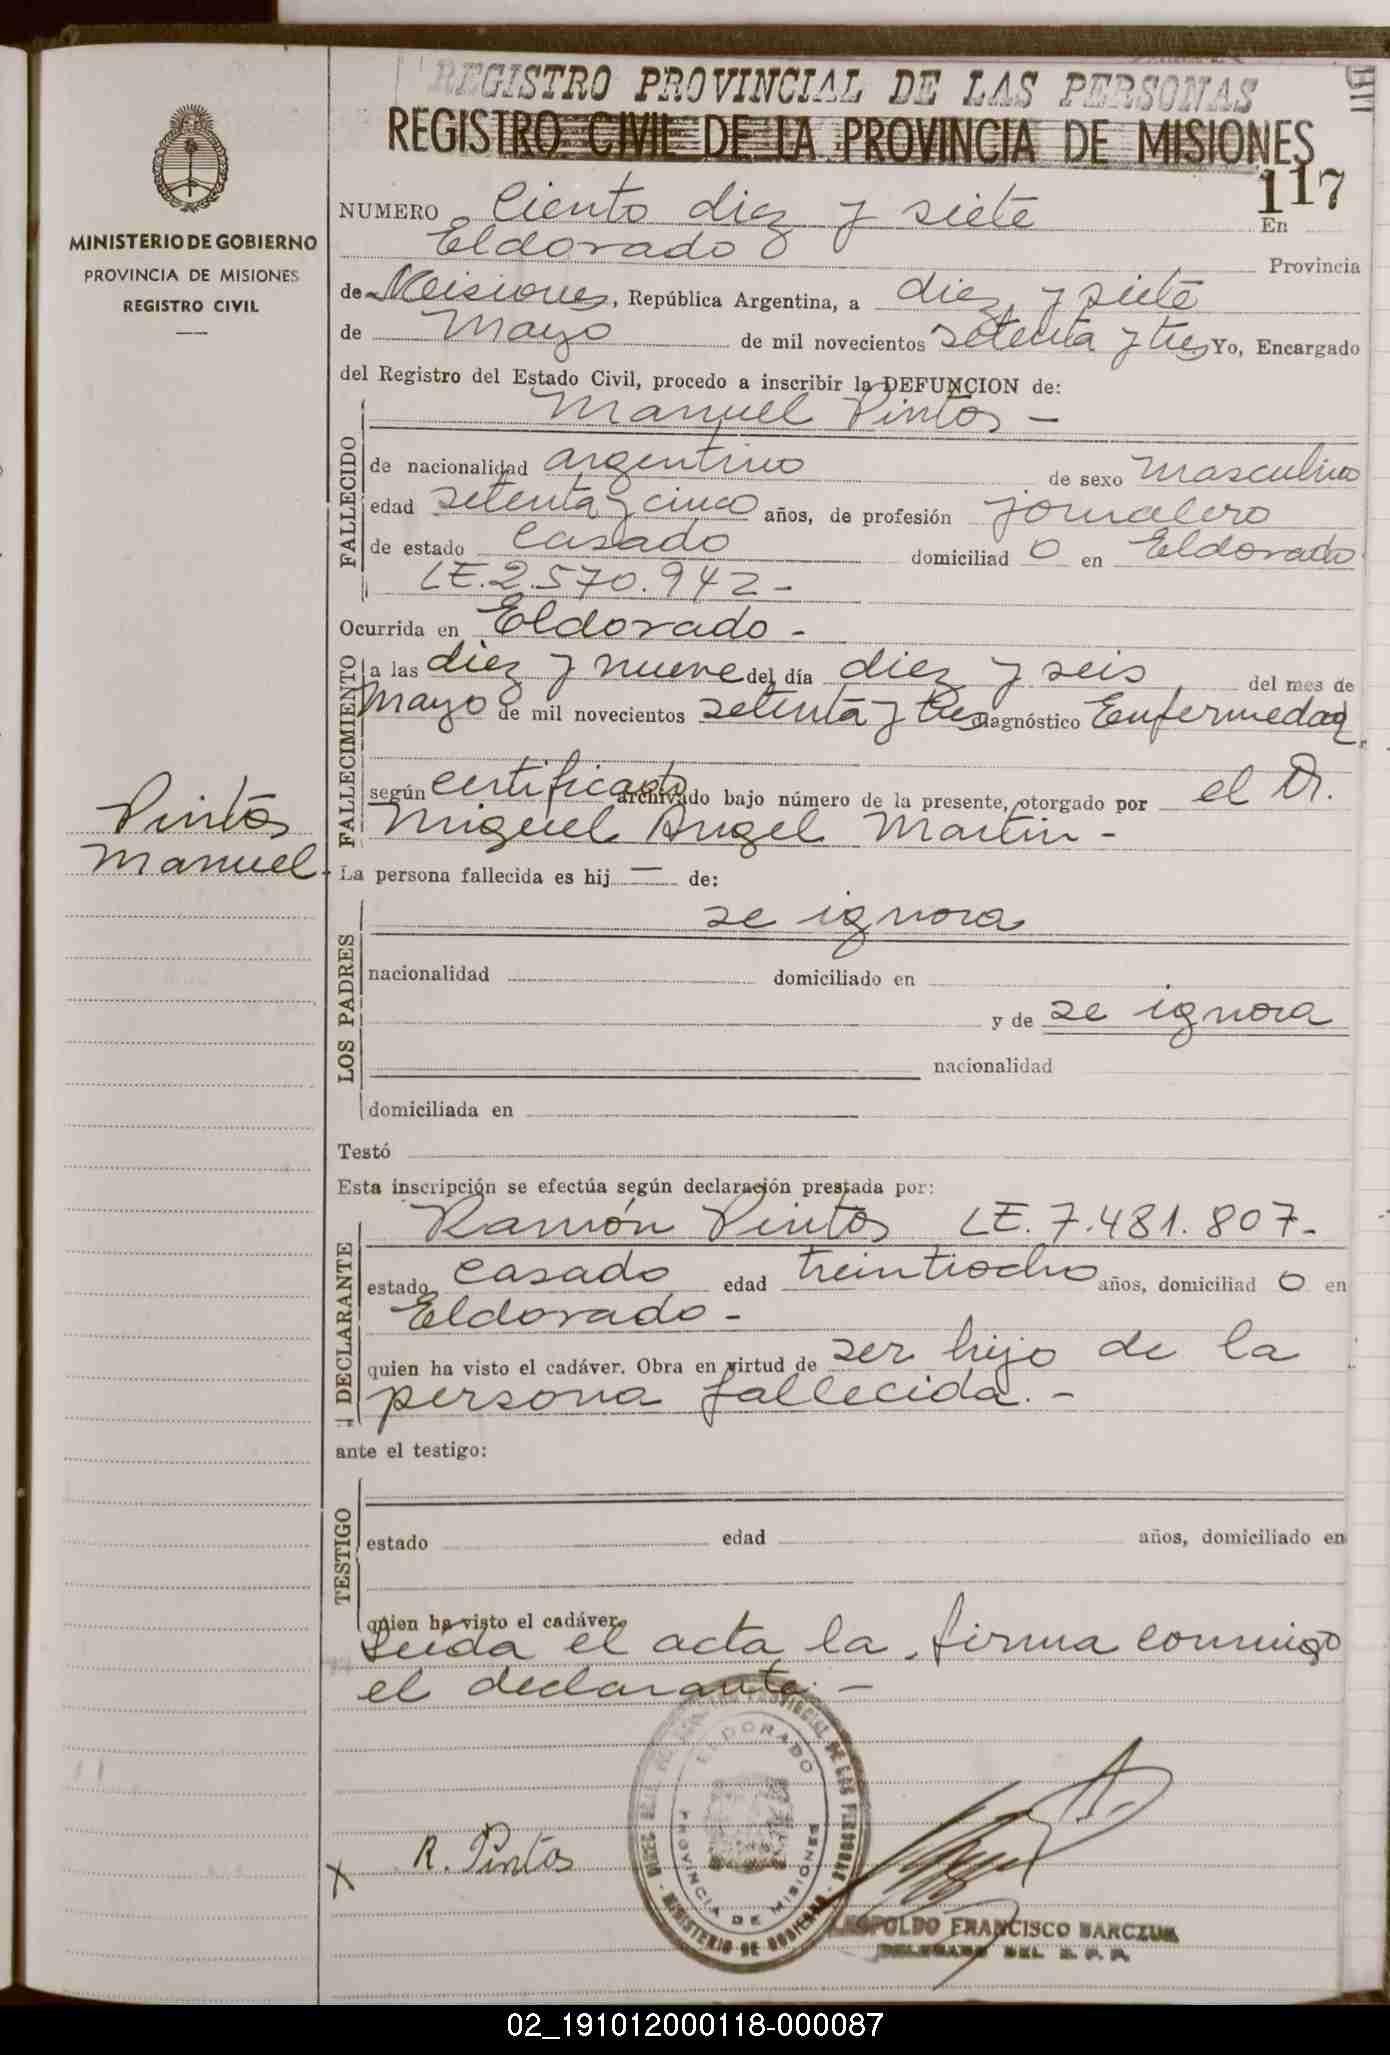 REGISTRO PROVINCIAL DE LAS PERSONAS
REGISTRO CIVIL DE LA PROVINCIA DE MISIONES
117
MINISTERIO DE GOBIERNO
PROVINCIA DE MISIONES
REGISTRO CIVIL
NUMERO Ciento diez y siete En
Eldorado Provincia
de Misiones, República Argentina, a diez y siete
de Mayo de mil novecientos setenta y tres Yo, Encargado
del Registro del Estado Civil, procedo a inscribir la DEFUNCION de:
Manuel Pintos -
FALLECIDO
de nacionalidad argentino de sexo masculino
edad setenta y cinco años, de profesión jornalero
de estado casado domiciliad o en Eldorado
LE. 2.570.942 -
Ocurrida en Eldorado -
FALLECIMIENTO
a las diez y nueve del día diez y seis del mes de
Mayo de mil novecientos setenta y tres diagnóstico Enfermedad
según certificado archivado bajo número de la presente, otorgado por el Dr.
Miguel Angel Martin -
Pintos
Manuel
La persona fallecida es hij — de:
LOS PADRES
se ignora
nacionalidad domiciliado en
y de se ignora
nacionalidad
domiciliada en
Testó
Esta inscripción se efectúa según declaración prestada por:
DECLARANTE
Ramón Pintos LE. 7.481.807 -
estado casado edad treintiocho años, domiciliad o en
Eldorado -
quien ha visto el cadáver. Obra en virtud de ser hijo de la
persona fallecida. -
ante el testigo:
TESTIGO
estado edad años, domiciliado en
quien ha visto el cadáver.
Leida el acta la firma conmigo
el declarante. -
ELDORADO
PROVINCIA DE MISIONES
MINISTERIO DE GOBIERNO
X R. Pintos
LEOPOLDO FRANCISCO BARCZUK
DELEGADO DEL R. P. P.
02_191012000118-000087